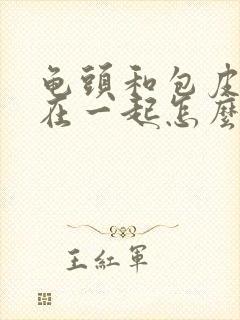 龟頭和包皮
在一起怎麼
王紅軍